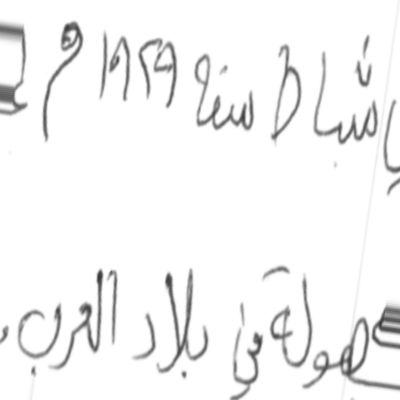 شباط سنة ١٩٢٩ م
هولة في بلاد العرب